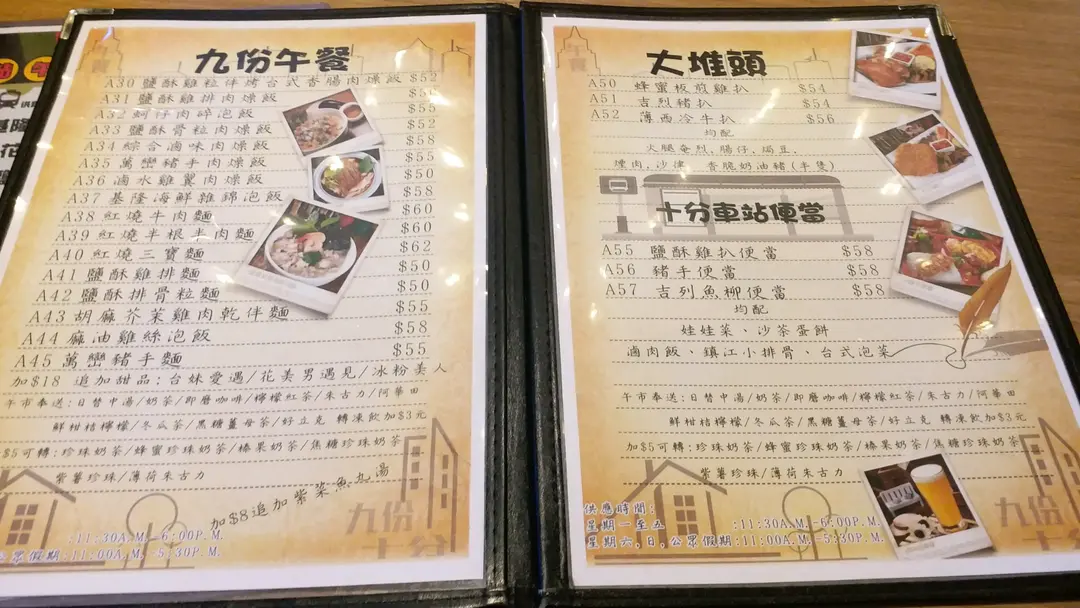 九份午餐
A30 鹽酥雞粒伴烤台式香腸肉燥飯 $52
A31 鹽酥雞排肉燥飯 $50
A32 蚵仔肉碎泡飯 $55
A33 鹽酥骨粒肉燥飯 $58
A34 綜合滷味肉燥飯 $58
A35 萬巒豬手肉燥飯 $55
A36 滷水雞翼肉燥飯 $50
A37 基隆海鮮雜錦泡飯 $58
A38 紅燒牛肉麵 $60
A39 紅燒半根半肉麵 $60
A40 紅燒三寶麵 $62
A41 鹽酥雞排麵 $50
A42 鹽酥排骨粒麵 $50
A43 胡麻芥茉雞肉乾伴麵 $55
A44 麻油雞絲泡飯 $58
A45 萬巒豬手麵 $55
加$18 追加甜品:台妹愛遇/花美男遇見/冰粉美人
午市奉送:日替中湯/奶茶/即磨咖啡/檸檬紅茶/朱古力/阿華田
鮮柑桔檸檬/冬瓜茶/黑糖薑母茶/好立克 轉凍飲加$3元
$5可轉:珍珠奶茶/蜂蜜珍珠奶茶/榛果奶茶/焦糖珍珠奶茶
紫薯珍珠/薄荷朱古力
加$8追加紫菜魚丸湯
:11:30A.M.-6:00P.M.
公眾假期:11:00A.M.-5:30P.M.
大堆頭
A50 蜂蜜板煎雞扒 $54
A51 吉烈豬扒 $54
A52 薄西冷牛扒 $56
均配
火腿奄烈,腸仔,焗豆
煙肉,沙律 香脆奶油豬(半隻)
十分車站便當
A55 鹽酥雞扒便當 $58
A56 豬手便當 $58
A57 吉列魚柳便當 $58
均配
娃娃菜、沙茶蛋餅
滷肉飯、鎮江小排骨、台式泡菜
午市奉送:日替中湯/奶茶/即磨咖啡/檸檬紅茶/朱古力/阿華田
鮮柑桔檸檬/冬瓜茶/黑糖薑母茶/好立克 轉凍飲加$3元
加$5可轉:珍珠奶茶/蜂蜜珍珠奶茶/榛果奶茶/焦糖珍珠奶茶
紫薯珍珠/薄荷朱古力
供應時間:
星期一至五 :11:30A.M.-6:00P.M.
星期六,日,公眾假期:11:00A.M.-5:30P.M.
九份
十分